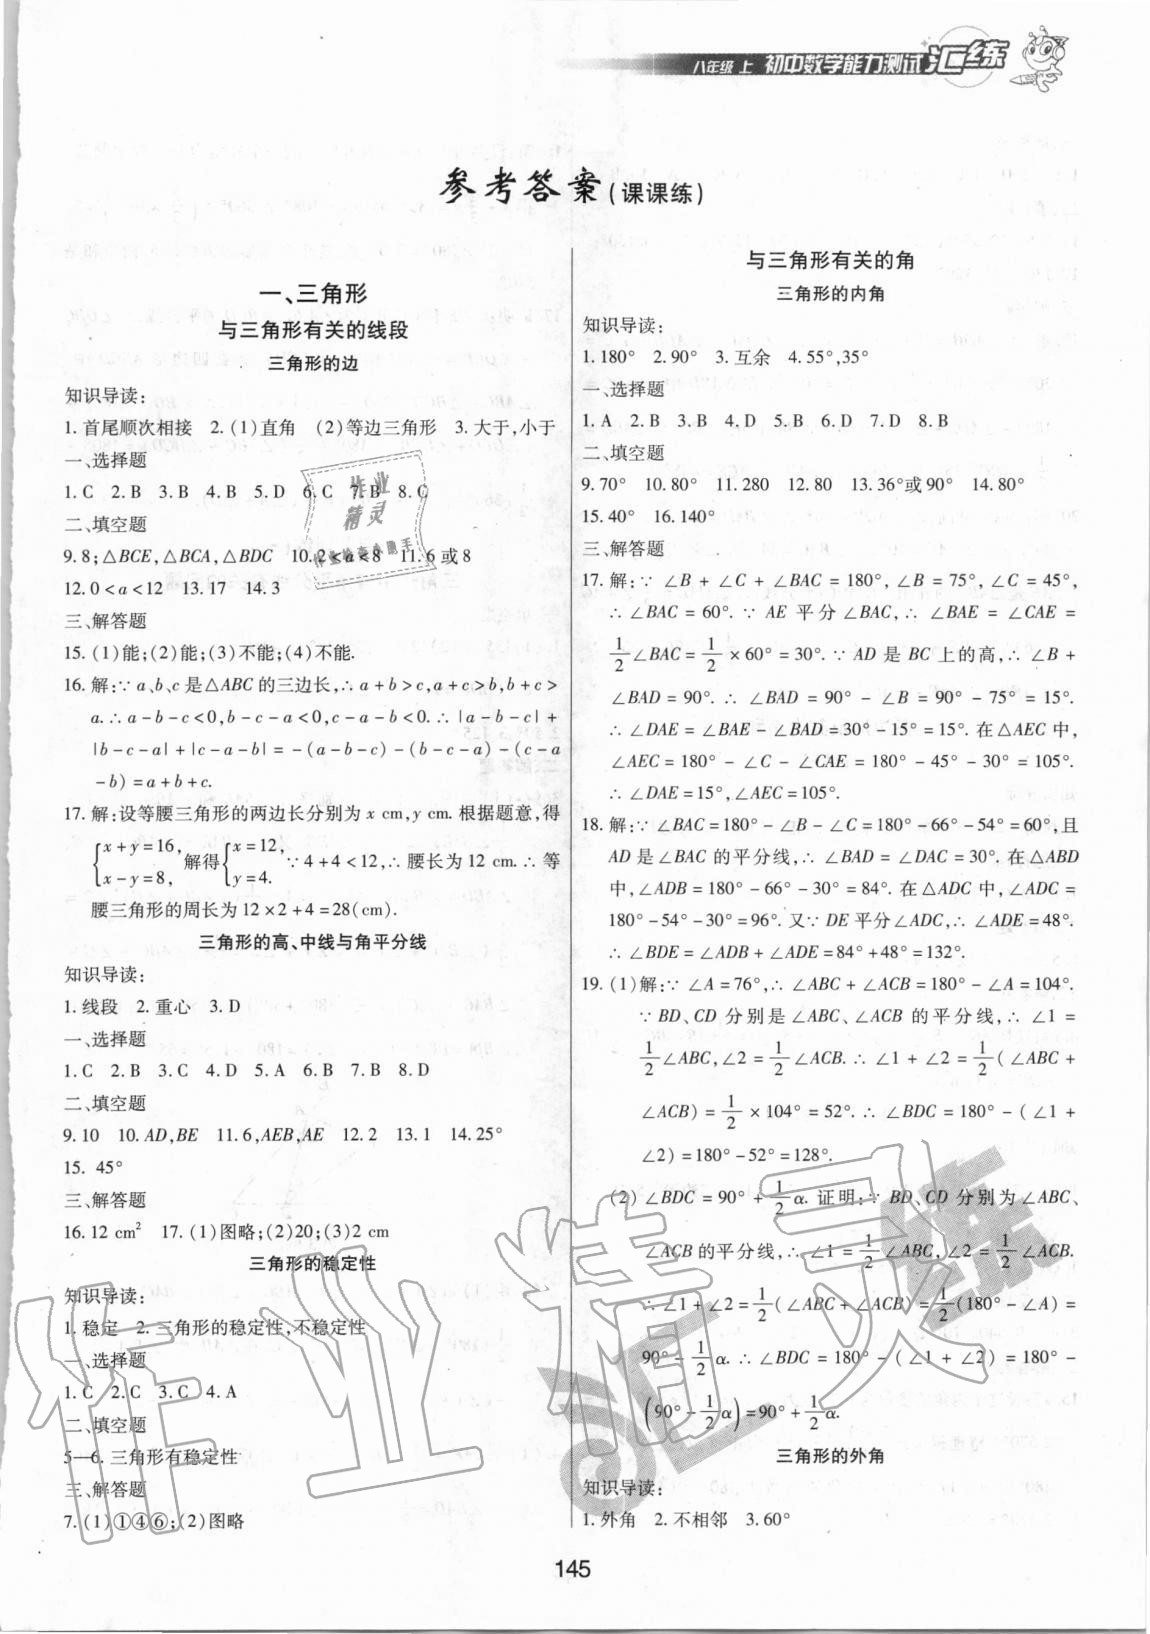 八年级 上 初中数学能力测试汇练
参考答案(课课练)
一、三角形
与三角形有关的线段
三角形的边
知识导读:
1. 首尾顺次相接 2. (1)直角 (2)等边三角形 3. 大于,小于
一、选择题
1. C 2. B 3. B 4. B 5. D 6. C 7. B 8. C
二、填空题
9. 8;△BCE,△BCA,△BDC 10. 2<a<8 11. 6 或 8
12. 0<a<12 13. 17 14. 3
三、解答题
15. (1)能;(2)能;(3)不能;(4)不能.
16. 解:∵a、b、c是△ABC的三边长,∴a+b>c,a+c>b,b+c>
a.∴a-b-c<0,b-c-a<0,c-a-b<0.∴|a-b-c|+
|b-c-a|+|c-a-b|=-(a-b-c)-(b-c-a)-(c-a
-b)=a+b+c.
17. 解:设等腰三角形的两边长分别为 x cm,y cm. 根据题意,得
{x+y=16, x-y=8, 解得{x=12, y=4. ∵4+4<12,∴腰长为 12 cm.∴等
腰三角形的周长为 12×2+4=28(cm).
三角形的高、中线与角平分线
知识导读:
1. 线段 2. 重心 3. D
一、选择题
1. C 2. B 3. C 4. D 5. A 6. B 7. B 8. D
二、填空题
9. 10 10. AD,BE 11. 6,AEB,AE 12. 2 13. 1 14. 25°
15. 45°
三、解答题
16. 12 cm² 17. (1)图略;(2)20;(3)2 cm
三角形的稳定性
知识导读:
1. 稳定 2. 三角形的稳定性,不稳定性
一、选择题
1. C 2. C 3. C 4. A
二、填空题
5—6. 三角形有稳定性
三、解答题
7. (1)①④⑥;(2)图略
与三角形有关的角
三角形的内角
知识导读:
1. 180° 2. 90° 3. 互余 4. 55°,35°
一、选择题
1. A 2. B 3. B 4. D 5. B 6. D 7. D 8. B
二、填空题
9. 70° 10. 80° 11. 280 12. 80 13. 36°或 90° 14. 80°
15. 40° 16. 140°
三、解答题
17. 解:∵∠B+∠C+∠BAC=180°,∠B=75°,∠C=45°,
∴∠BAC=60°.∵AE 平分∠BAC,∴∠BAE=∠CAE=
1/2∠BAC=1/2×60°=30°.∵AD 是 BC 上的高,∴∠B+
∠BAD=90°.∴∠BAD=90°-∠B=90°-75°=15°.
∴∠DAE=∠BAE-∠BAD=30°-15°=15°. 在△AEC 中,
∠AEC=180°-∠C-∠CAE=180°-45°-30°=105°.
∴∠DAE=15°,∠AEC=105°.
18. 解:∵∠BAC=180°-∠B-∠C=180°-66°-54°=60°,且
AD是∠BAC的平分线,∴∠BAD=∠DAC=30°. 在△ABD
中,∠ADB=180°-66°-30°=84°. 在△ADC 中,∠ADC=
180°-54°-30°=96°. 又∵DE 平分∠ADC,∴∠ADE=48°.
∴∠BDE=∠ADB+∠ADE=84°+48°=132°.
19. (1)解:∵∠A=76°,∴∠ABC+∠ACB=180°-∠A=104°.
∵BD、CD 分别是∠ABC、∠ACB 的平分线,∴∠1=
1/2∠ABC,∠2=1/2∠ACB.∴∠1+∠2=1/2(∠ABC+
∠ACB)=1/2×104°=52°.∴∠BDC=180°-(∠1+
∠2)=180°-52°=128°.
(2)∠BDC=90°+1/2α. 证明:∵BD、CD 分别为∠ABC、
∠ACB的平分线,∴∠1=1/2∠ABC,∠2=1/2∠ACB.
∴∠1+∠2=1/2(∠ABC+∠ACB)=1/2(180°-∠A)=
90°-1/2α.∴∠BDC=180°-(∠1+∠2)=180°-
(90°-1/2α)=90°+1/2α.
三角形的外角
知识导读:
1. 外角 2. 不相邻 3. 60°
145
作业
精灵
作业检查小助手
作业精灵